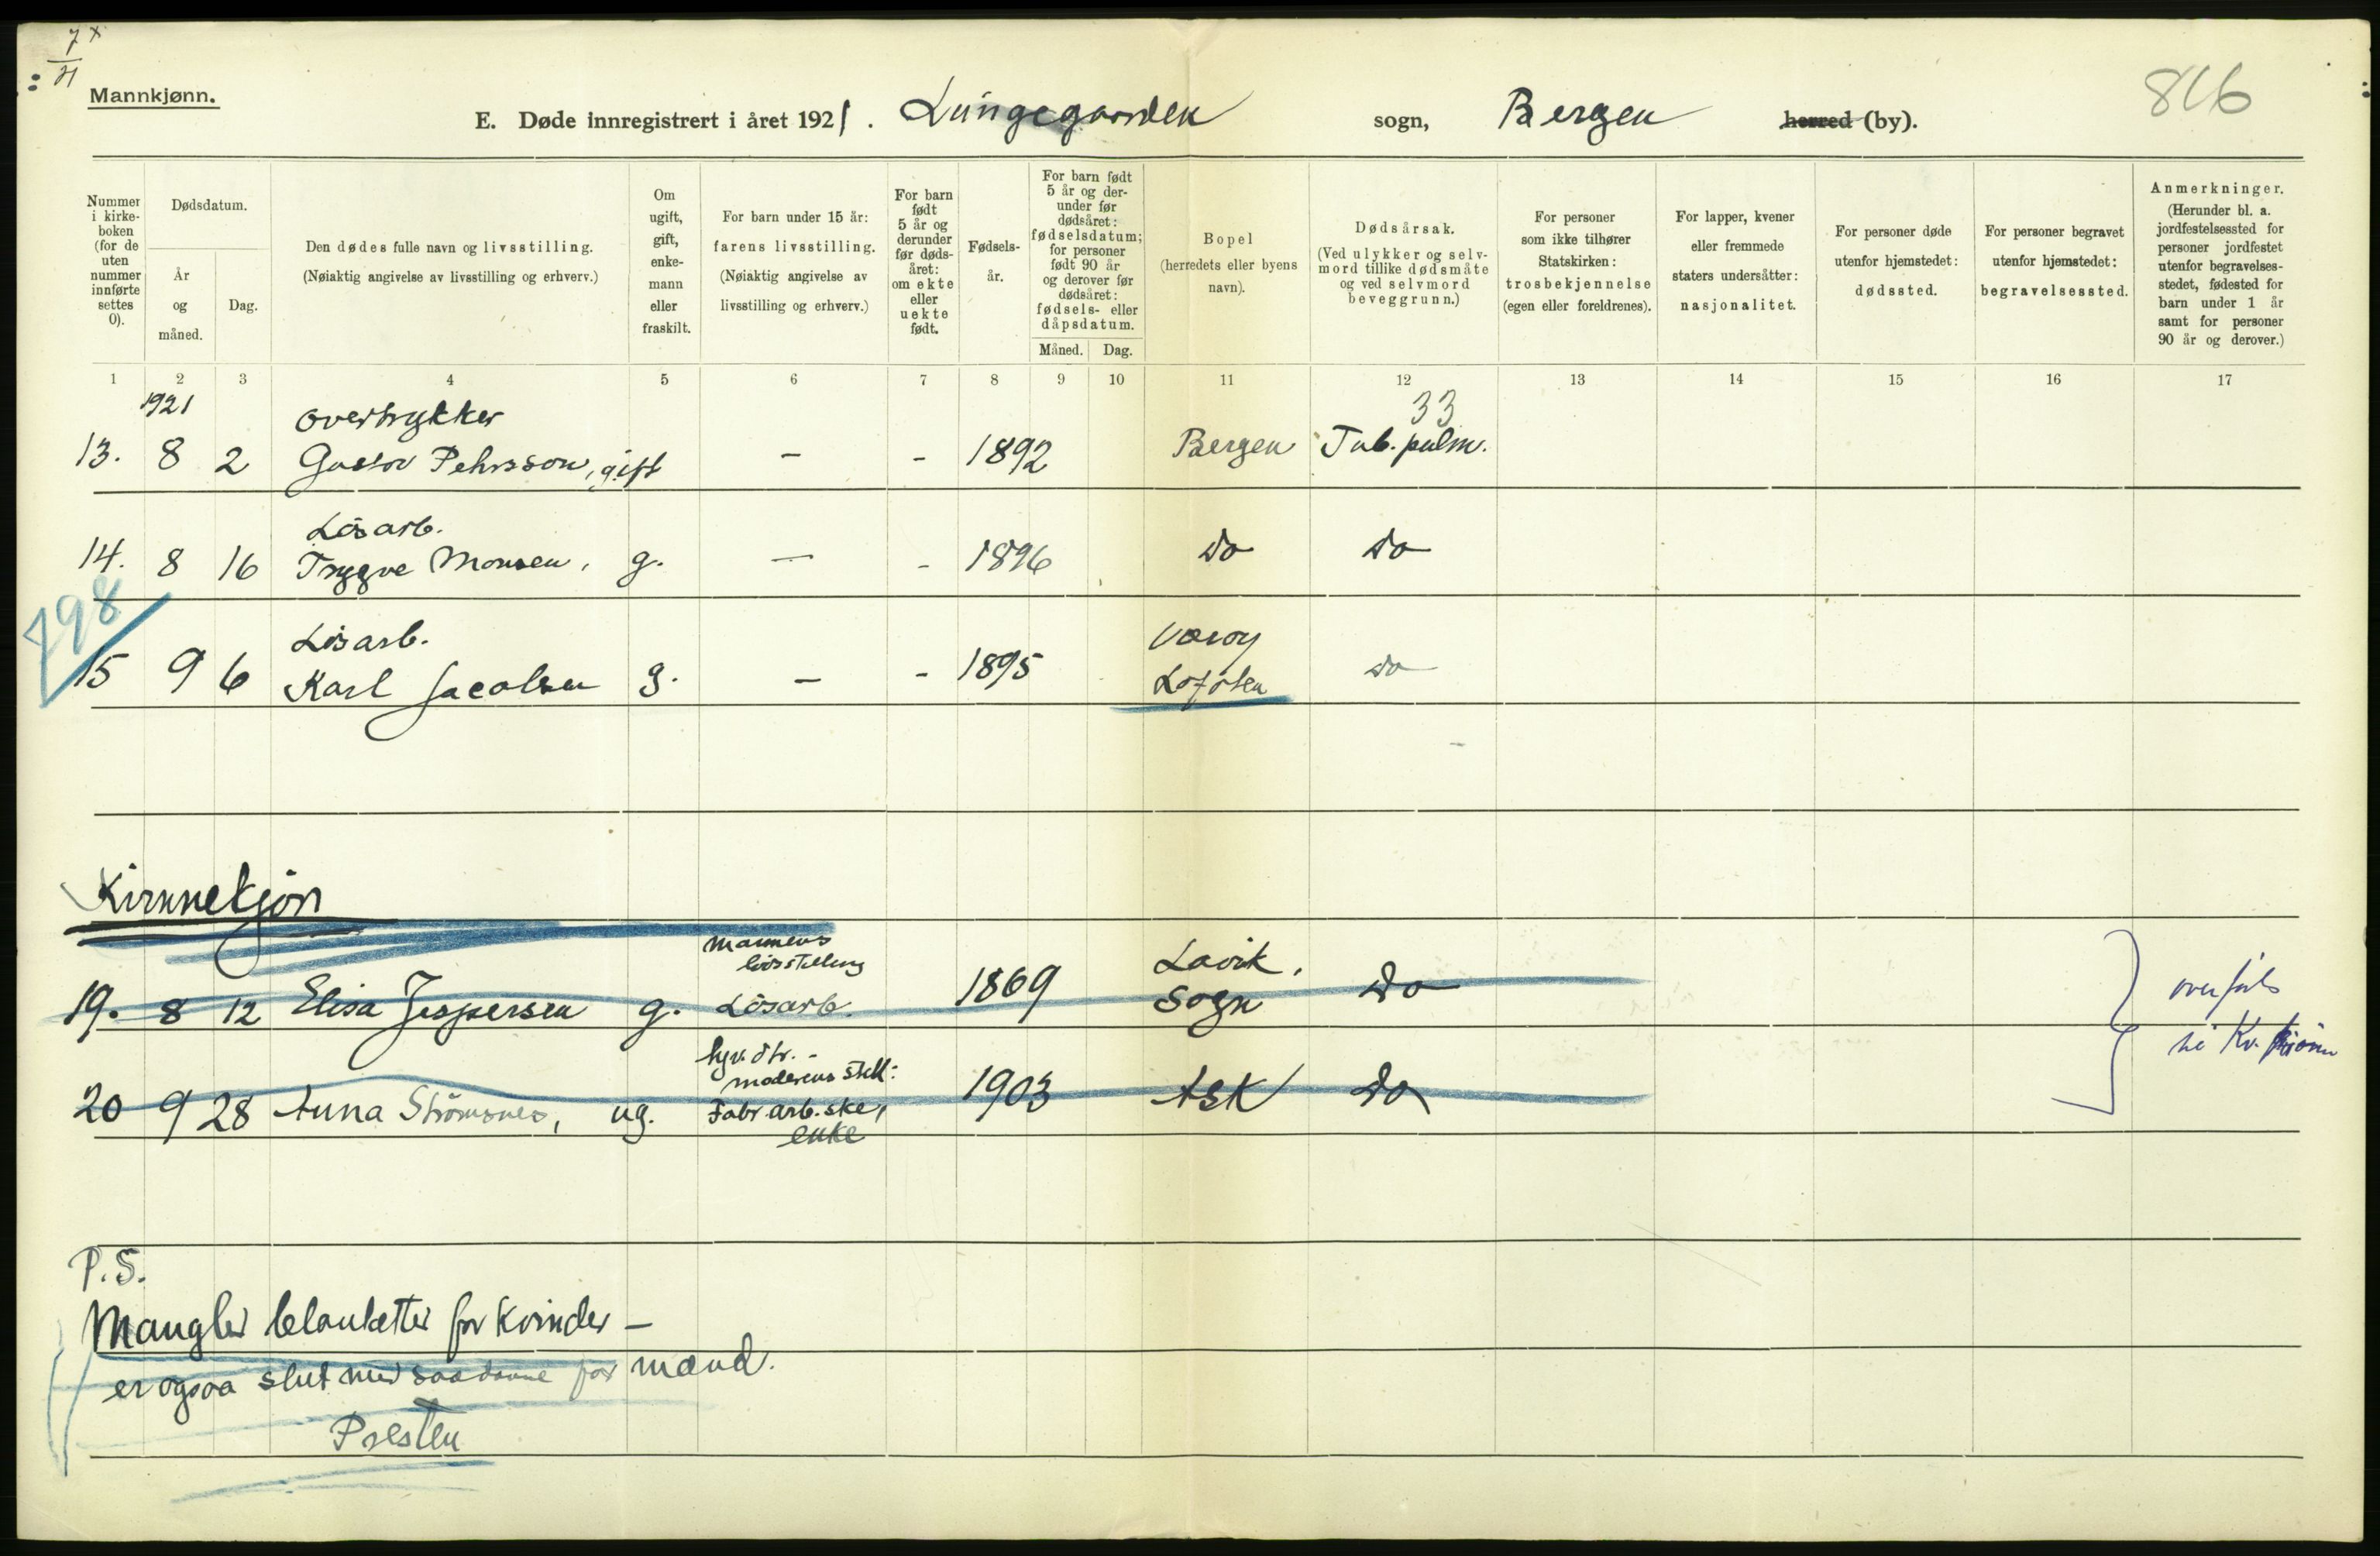 7 x
21
Mannkjønn.
E. Døde innregistrert i året 1921. Lungegaarden sogn, Bergen herred (by).
Nummer i kirke- boken (for de uten nummer innførte settes 0).
Dødsdatum.
År og måned.
Dag.
Den dødes fulle navn og livsstilling.
(Nøiaktig angivelse av livsstilling og erhverv.)
Om ugift, gift, enke- mann eller fraskilt.
For barn under 15 år: farens livsstilling.
(Nøiaktig angivelse av livsstilling og erhverv.)
For barn født 5 år og derunder før døds- året: om ekte eller uekte født.
Fødsels- år.
For barn født 5 år og der- under før dødsåret: fødselsdatum; for personer født 90 år og derover før dødsåret: fødsels- eller dåpsdatum.
Måned. Dag.
Bopel (herredets eller byens navn).
Dødsårsak.
(Ved ulykker og selv- mord tillike dødsmåte og ved selvmord beveggrunn.)
For personer som ikke tilhører Statskirken: trosbekjennelse (egen eller foreldrenes).
For lapper, kvener eller fremmede staters undersåtter: nasjonalitet.
For personer døde utenfor hjemstedet: dødssted.
For personer begravet utenfor hjemstedet: begravelsessted.
Anmerkninger.
(Herunder bl. a. jordfestelsessted for personer jordfestet utenfor begravelses- stedet, fødested for barn under 1 år samt for personer 90 år og derover.)
1 2 3 4 5 6 7 8 9 10 11 12 13 14 15 16 17
1921 overtrykker 33
13. 8 2 Gustov Pehrsson, gift - - 1892 Bergen Tub. pulm.
Lösarb.
14. 8 16 Trygve Monsen, g. - - 1896 do do
798
Lösarb. Væroy
15 9 6 Karl Jacobsen g. - - 1895 Lofoten do
Kvinnekjön
Mannens livsstilling Lavik,
19. 8 12 Elisa Jespersen g. Lösarb. 1869 Sogn do
moderens still:
20 9 28 Anna Strömsnes, ug. Fabr. arb. ske, 1903 Ask do
enke
overført
til Kv. kjönn
P.S.
Mangler blanketter for kvinder -
er ogsaa slut med saadanne for mænd.
Presten